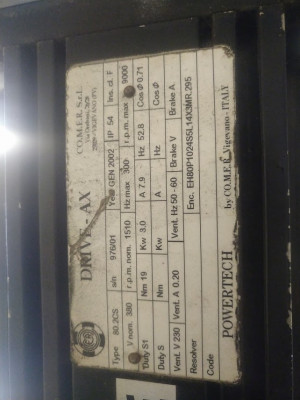 CO.M.E.R. S.r.l.
DRIVE - AX
Type 80.2CS s/n 976/01 Year GEN 2002 IP 54 Ins. cl. F
V nom. 380 r.p.m. nom. 1510 Hz max 300 r.p.m. max 9000
Duty S1 Nm 19 Kw 3.0 A 7.9 Hz 52.8 Cos Φ 0.71
Duty S Nm Kw A Hz Cos Φ
Vent. V 230 Vent. A 0.20 Vent. Hz 50 - 60 Brake V Brake A
Resolver Enc. EH80P1024S5L14X3MR.295
Code
POWERTECH by CO.M.E.R. Vigevano - ITALY